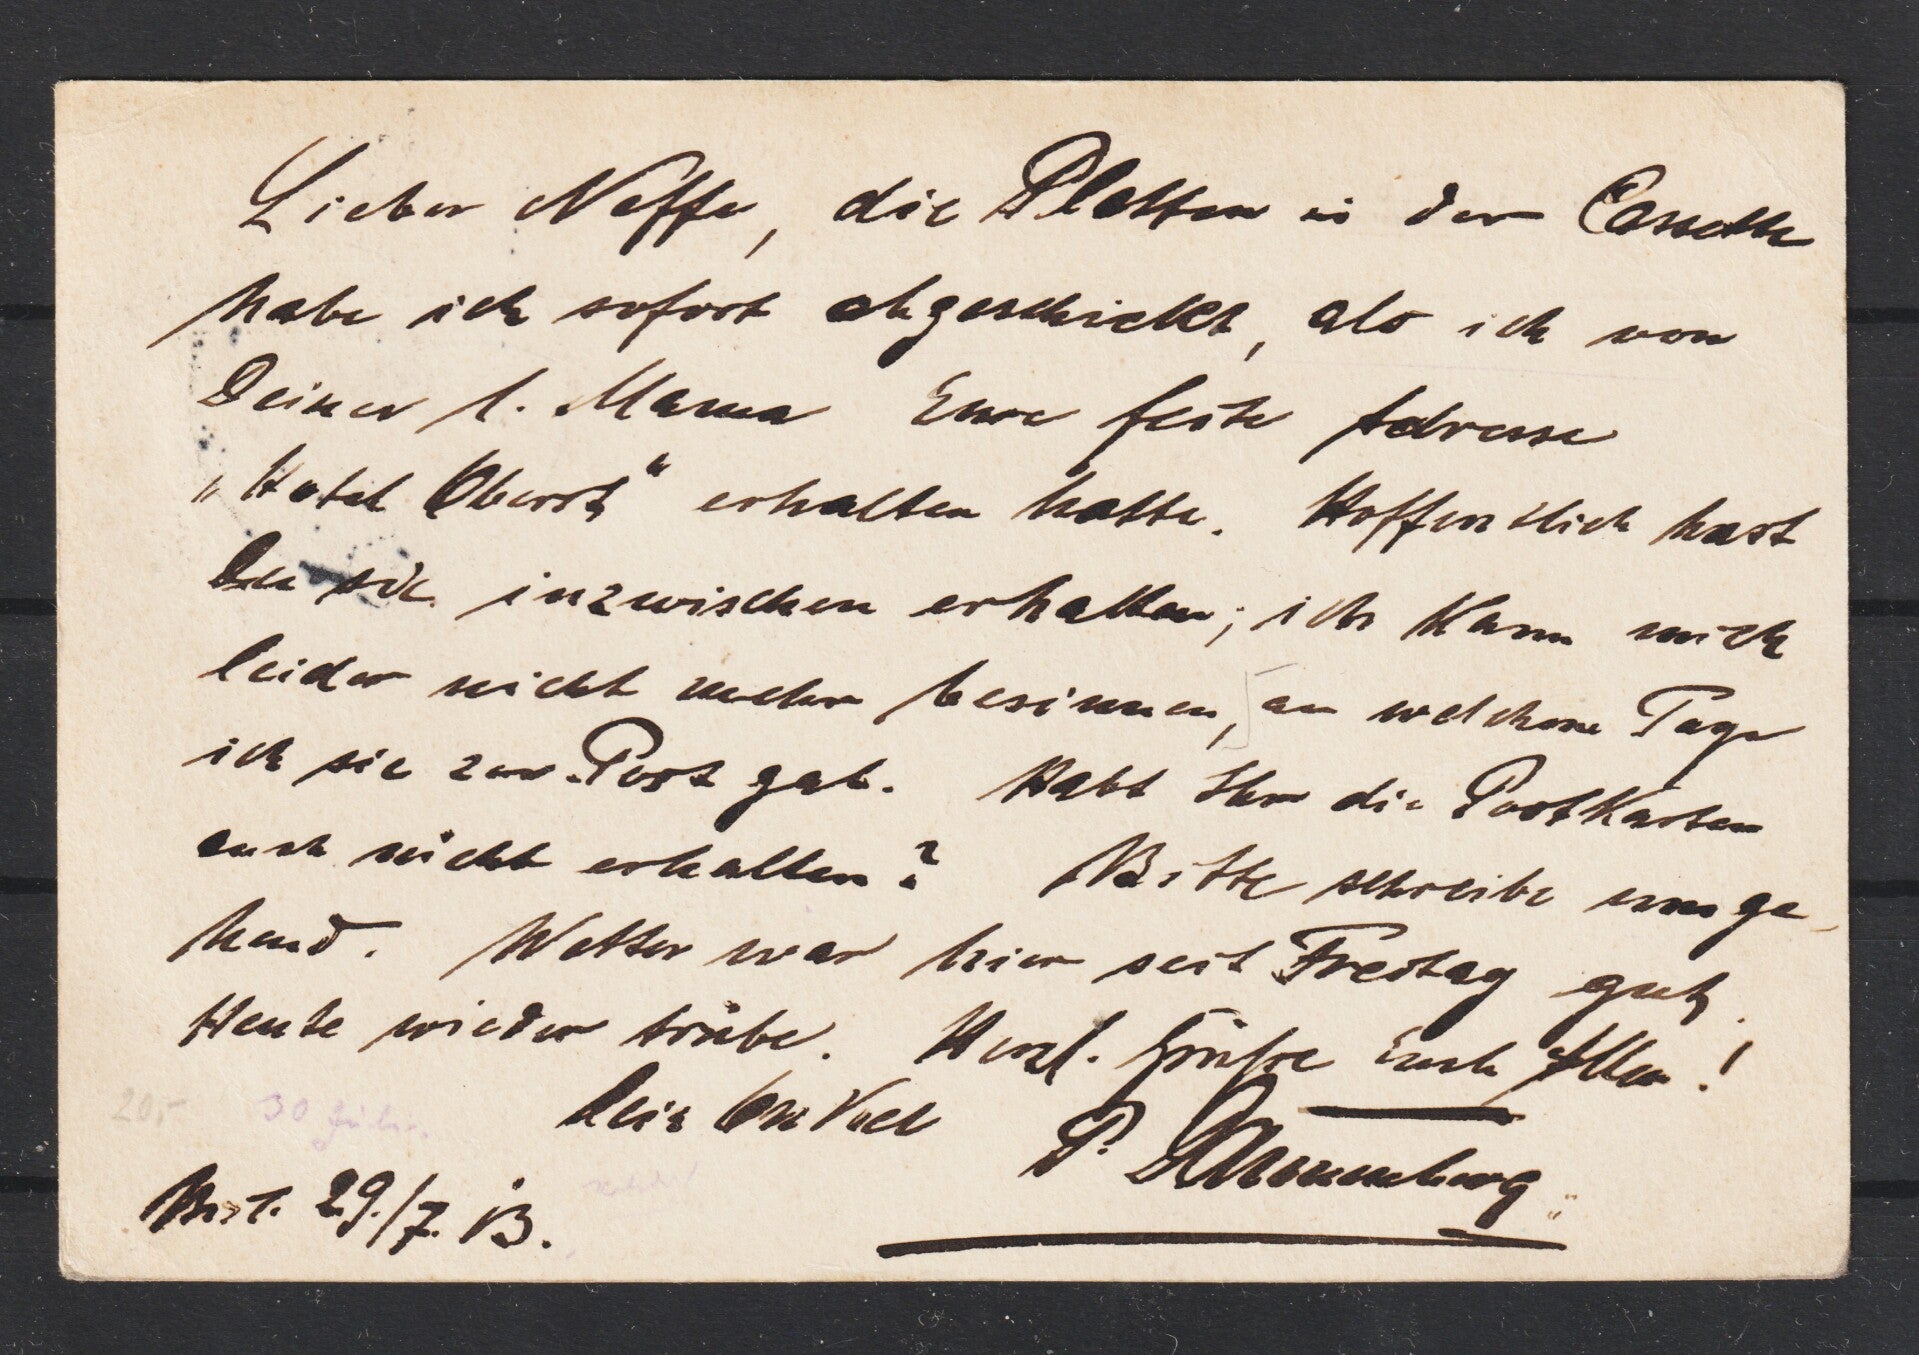 Lieber Neffe, die Platten in der Cassette
habe ich sofort abgeschickt, als ich von
Deiner l. Mama Eure feste Adresse
„Hotel Oberst“ erhalten hatte. Hoffentlich hast
Du sie inzwischen erhalten; ich kann mich
leider nicht mehr besinnen, an welchem Tage
ich sie zur Post gab. Habt Ihr die Postkarten
auch nicht erhalten? Bitte schreibe umge-
hend. Wetter war hier seit Freitag gut.
Heute wieder trübe. Herzl. Grüße Euch Allen!
Dein Onkel P.
29./7. 13.
20,-
30